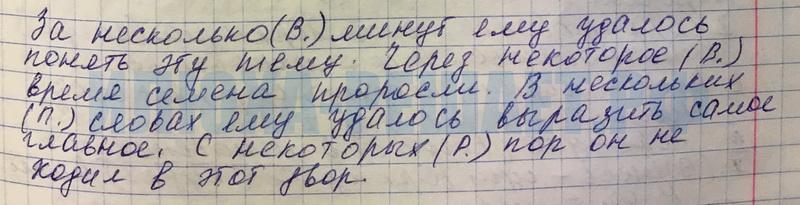 За несколько (В.) минут ему удалось
понять эту тему. Через некоторое (В.)
время семена проросли. В нескольких
(П.) словах ему удалось выразить самое
главное. С некоторых (Р.) пор он не
ходил в этот двор.